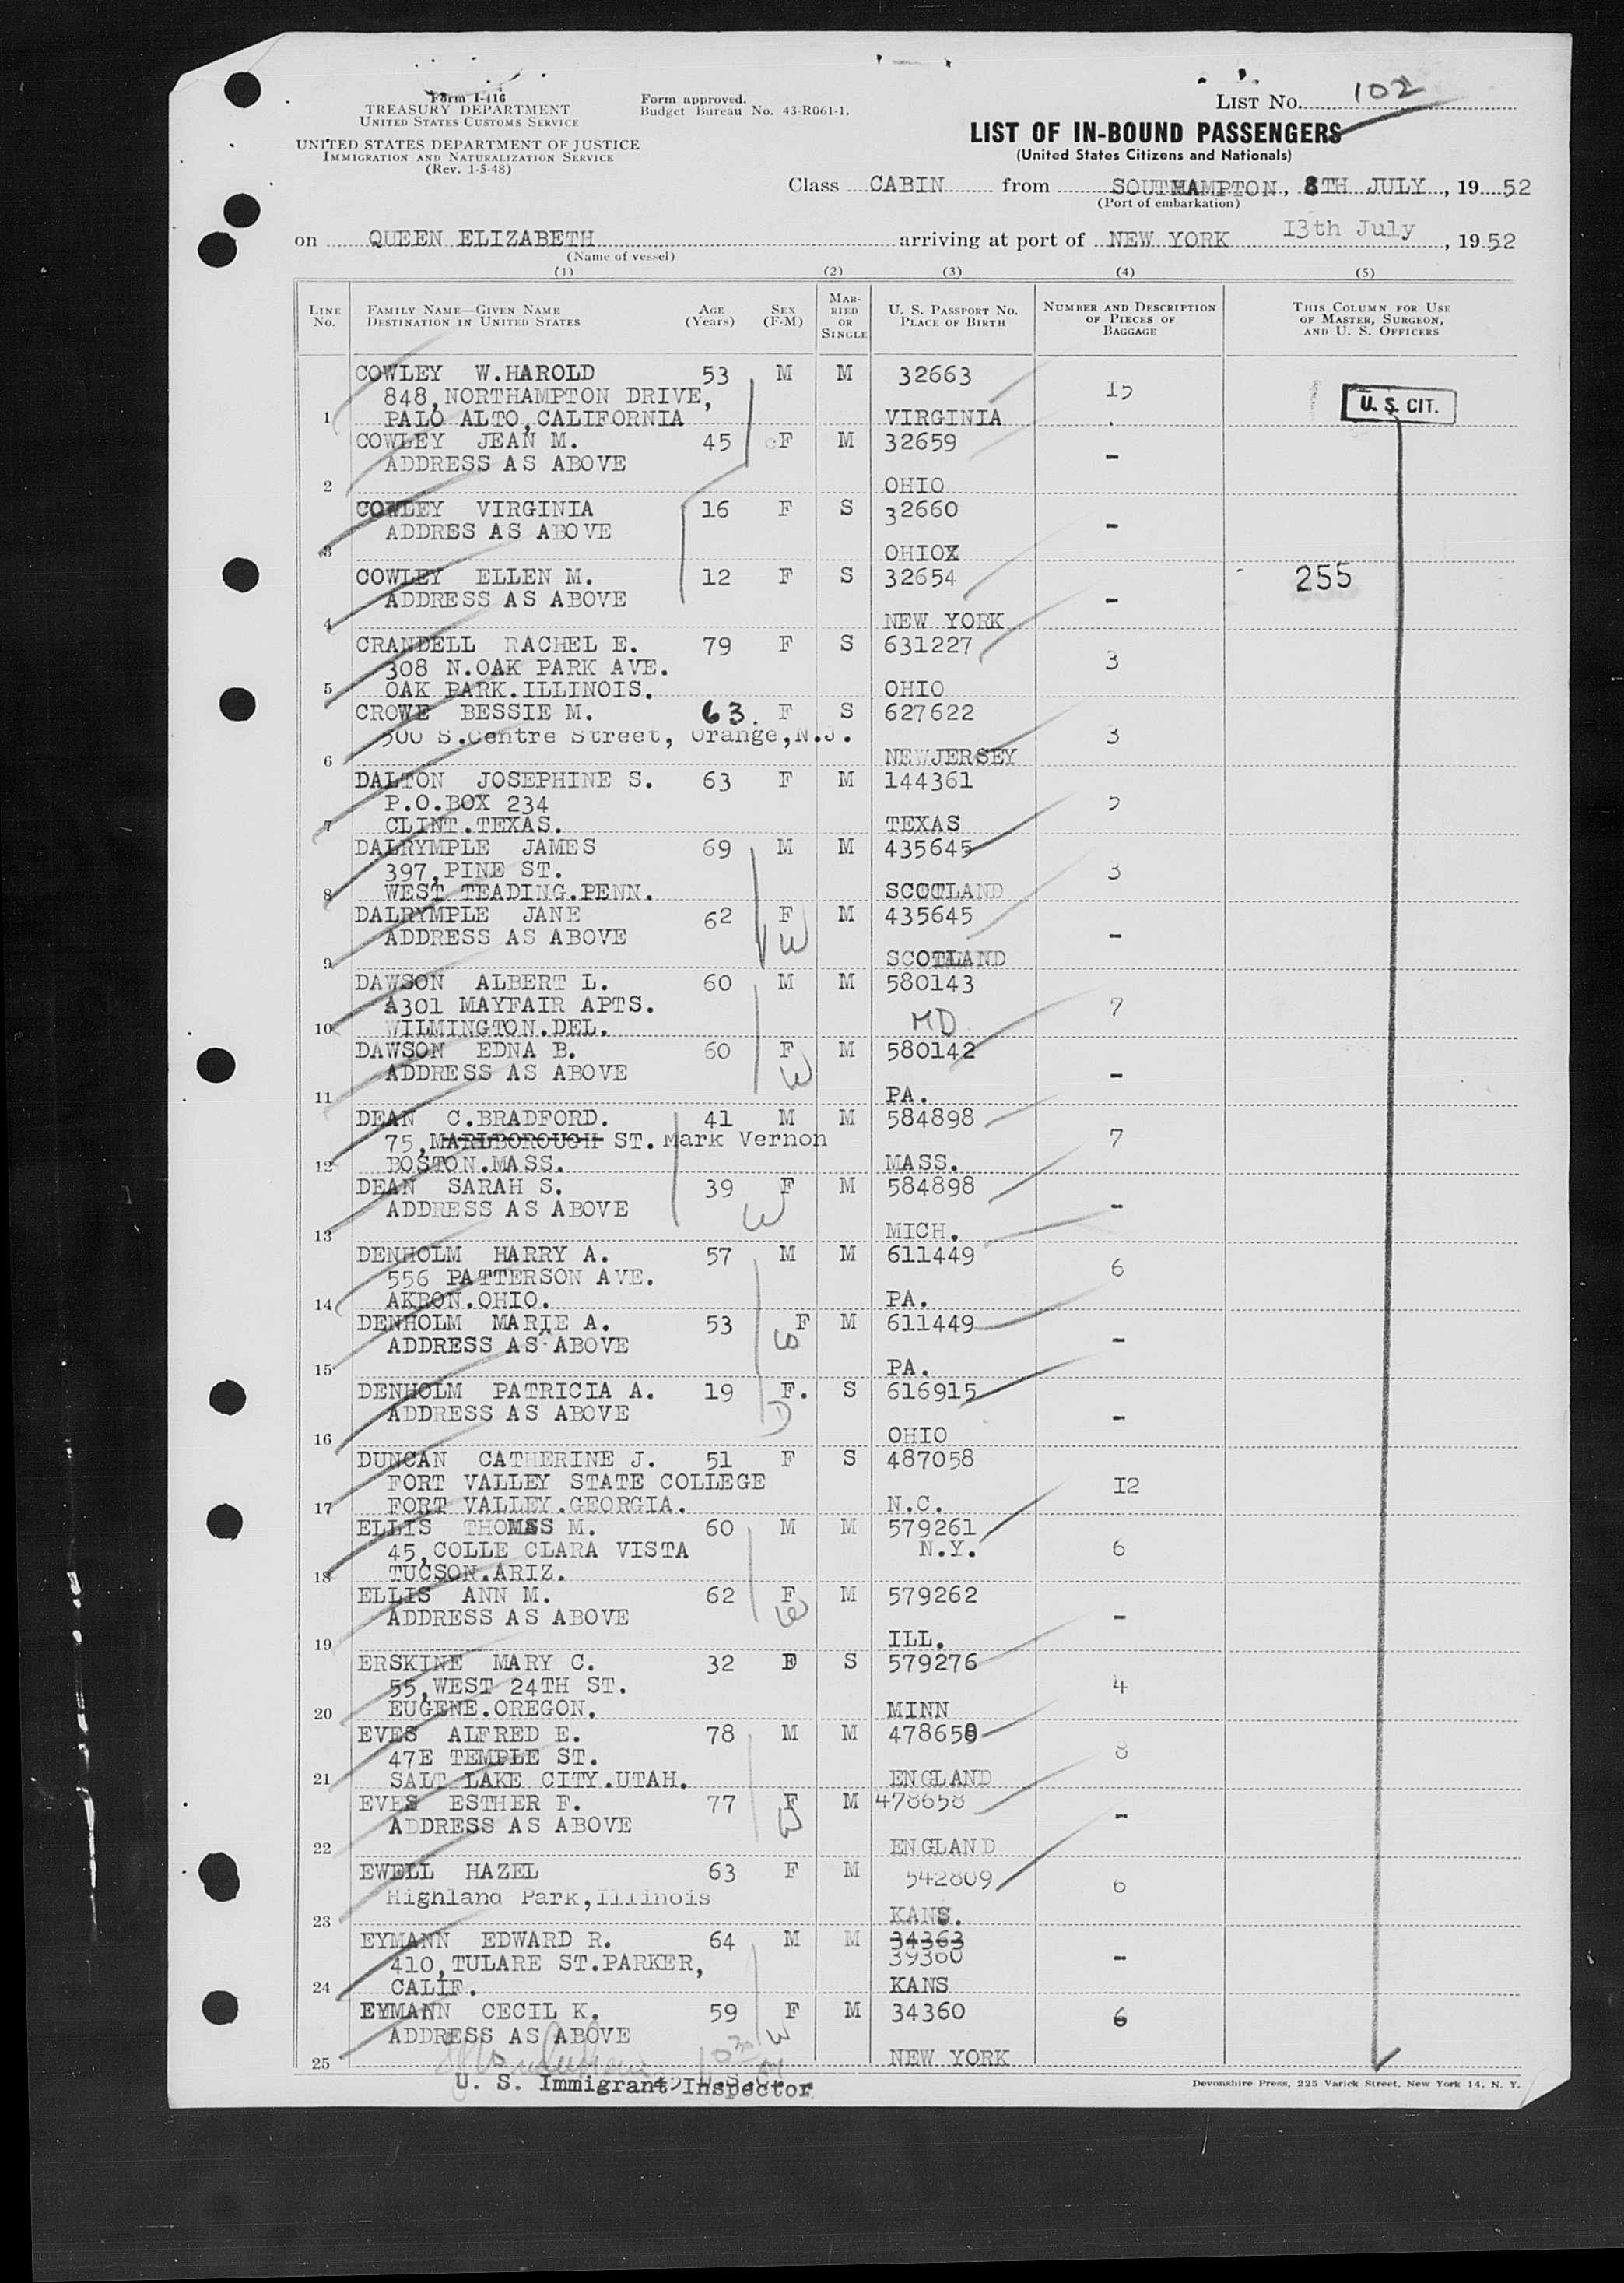 Form I-416
TREASURY DEPARTMENT
UNITED STATES CUSTOMS SERVICE
UNITED STATES DEPARTMENT OF JUSTICE
IMMIGRATION AND NATURALIZATION SERVICE
(Rev. 1-5-48)
Form approved.
Budget Bureau No. 43-R061-1.
LIST NO. 102
LIST OF IN-BOUND PASSENGERS
(United States Citizens and Nationals)
Class CABIN from SOUTHAMPTON, 8TH JULY, 19 52
(Port of embarkation)
on QUEEN ELIZABETH arriving at port of NEW YORK 13th July, 19 52
(Name of vessel)
(1) (2) (3) (4) (5)
LINE NO. FAMILY NAME—GIVEN NAME DESTINATION IN UNITED STATES AGE (Years) SEX (F-M) MARRIED OR SINGLE U. S. PASSPORT NO. PLACE OF BIRTH NUMBER AND DESCRIPTION OF PIECES OF BAGGAGE THIS COLUMN FOR USE OF MASTER, SURGEON, AND U. S. OFFICERS
COWLEY W.HAROLD 53 M M 32663 15
848,NORTHAMPTON DRIVE, U. S. CIT.
1 PALO ALTO,CALIFORNIA VIRGINIA
COWLEY JEAN M. 45 F M 32659
ADDRESS AS ABOVE -
2 OHIO
COWLEY VIRGINIA 16 F S 32660
ADDRES AS ABOVE -
3 OHIOX
COWLEY ELLEN M. 12 F S 32654 255
ADDRESS AS ABOVE -
4 NEW YORK
CRANDELL RACHEL E. 79 F S 631227
308 N.OAK PARK AVE. 3
5 OAK PARK.ILLINOIS. OHIO
CROWE BESSIE M. 63. F S 627622
500 S.Centre Street, Orange,N.J. 3
6 NEWJERSEY
DALTON JOSEPHINE S. 63 F M 144361
P.O.BOX 234 5
7 CLINT.TEXAS. TEXAS
DALRYMPLE JAMES 69 M M 435645
397,PINE ST. 3
8 WEST TEADING.PENN. SCOTLAND
DALRYMPLE JANE 62 F M 435645
ADDRESS AS ABOVE W -
9 SCOTLAND
DAWSON ALBERT L. 60 M M 580143
A301 MAYFAIR APTS. 7
10 WILMINGTON.DEL. MD
DAWSON EDNA B. 60 F M 580142
ADDRESS AS ABOVE W -
11 PA.
DEAN C.BRADFORD. 41 M M 584898
75,MARLBOROUGH ST. Mark Vernon 7
12 BOSTON.MASS. MASS.
DEAN SARAH S. 39 F M 584898
ADDRESS AS ABOVE W -
13 MICH.
DENHOLM HARRY A. 57 M M 611449
556 PATTERSON AVE. 6
14 AKRON.OHIO. PA.
DENHOLM MARIE A. 53 F M 611449
ADDRESS AS ABOVE W -
15 PA.
DENHOLM PATRICIA A. 19 F. S 616915
ADDRESS AS ABOVE D -
16 OHIO
DUNCAN CATHERINE J. 51 F S 487058
FORT VALLEY STATE COLLEGE 12
17 FORT VALLEY.GEORGIA. N.C.
ELLIS THOMAS M. 60 M M 579261
45,COLLE CLARA VISTA N.Y. 6
18 TUCSON.ARIZ.
ELLIS ANN M. 62 F M 579262
ADDRESS AS ABOVE W -
19 ILL.
ERSKINE MARY C. 32 F S 579276
55,WEST 24TH ST. 4
20 EUGENE.OREGON. MINN
EVES ALFRED E. 78 M M 478658
47E TEMPLE ST. 8
21 SALT LAKE CITY.UTAH. ENGLAND
EVES ESTHER F. 77 F M 478658
ADDRESS AS ABOVE W -
22 ENGLAND
EWELL HAZEL 63 F M 542809
Highland Park,Illinois 6
23 KANS.
EYMANN EDWARD R. 64 M M 34363
410,TULARE ST.PARKER, 39360 -
24 CALIF. KANS
EYMANN CECIL K. 59 F M 34360 6
ADDRESS AS ABOVE W
25 NEW YORK
U. S. Immigrant Inspector
Devonshire Press, 225 Varick Street, New York 14, N. Y.